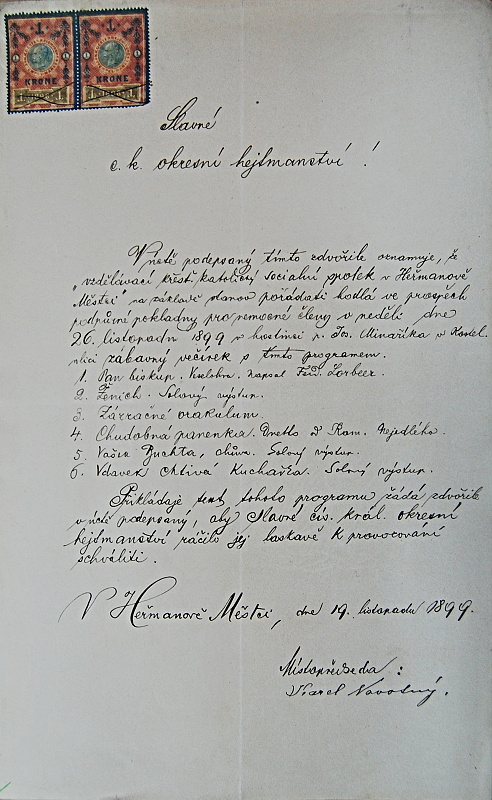 KRONE KRONE
Slavné
c. k. okresní hejtmanství !
V úctě podepsaný tímto zdvořile oznamuje, že
„vzdělávací křesť. katolický socialní spolek v Heřmanově
Městci" na základě stanov pořádati hodlá ve prospěch
podpůrné pokladny pro nemocné členy v neděli dne
26. listopadu 1899 v hostinci p. Jos. Minaříka v Kostel.
ulici zábavný večírek s tímto programem.
1. Pan biskup. Veselohra. napsal Ferd. Lorbeer.
2. Ženich. Solový výstup.
3. Zázračné orakulum.
4. Chudobná panenka. Duetto Ram. Nejedlého.
5. Vašek Buchta, chůva. Solový výstup.
6. Vdavek chtivá Kuchařka. Solový výstup.
Přikládaje text tohoto programu žádá zdvořile
v úctě podepsaný, aby Slavné cís. král. okresní
hejtmanství ráčilo jej laskavě k provozování
schváliti.
V Heřmanově Městci, dne 19. listopadu 1899.
Místopředseda :
Karel Novotný.